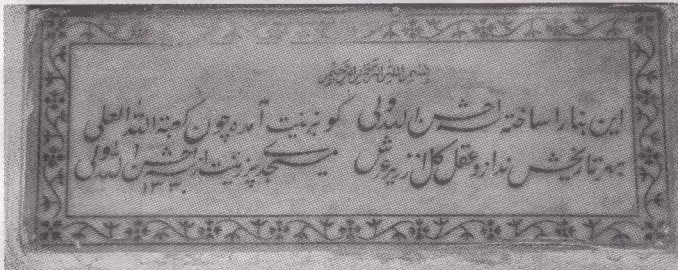 بسم الله الرحمن الرحیم
این بنا را ساخته احسن الله ولی کو بزینت آمده چون کعبة الله العلی
بهر تاریخش ندا زد عقل کل از زیر عرش مسجدے پر زینت از احسن الله ولی
۱۳۳۰